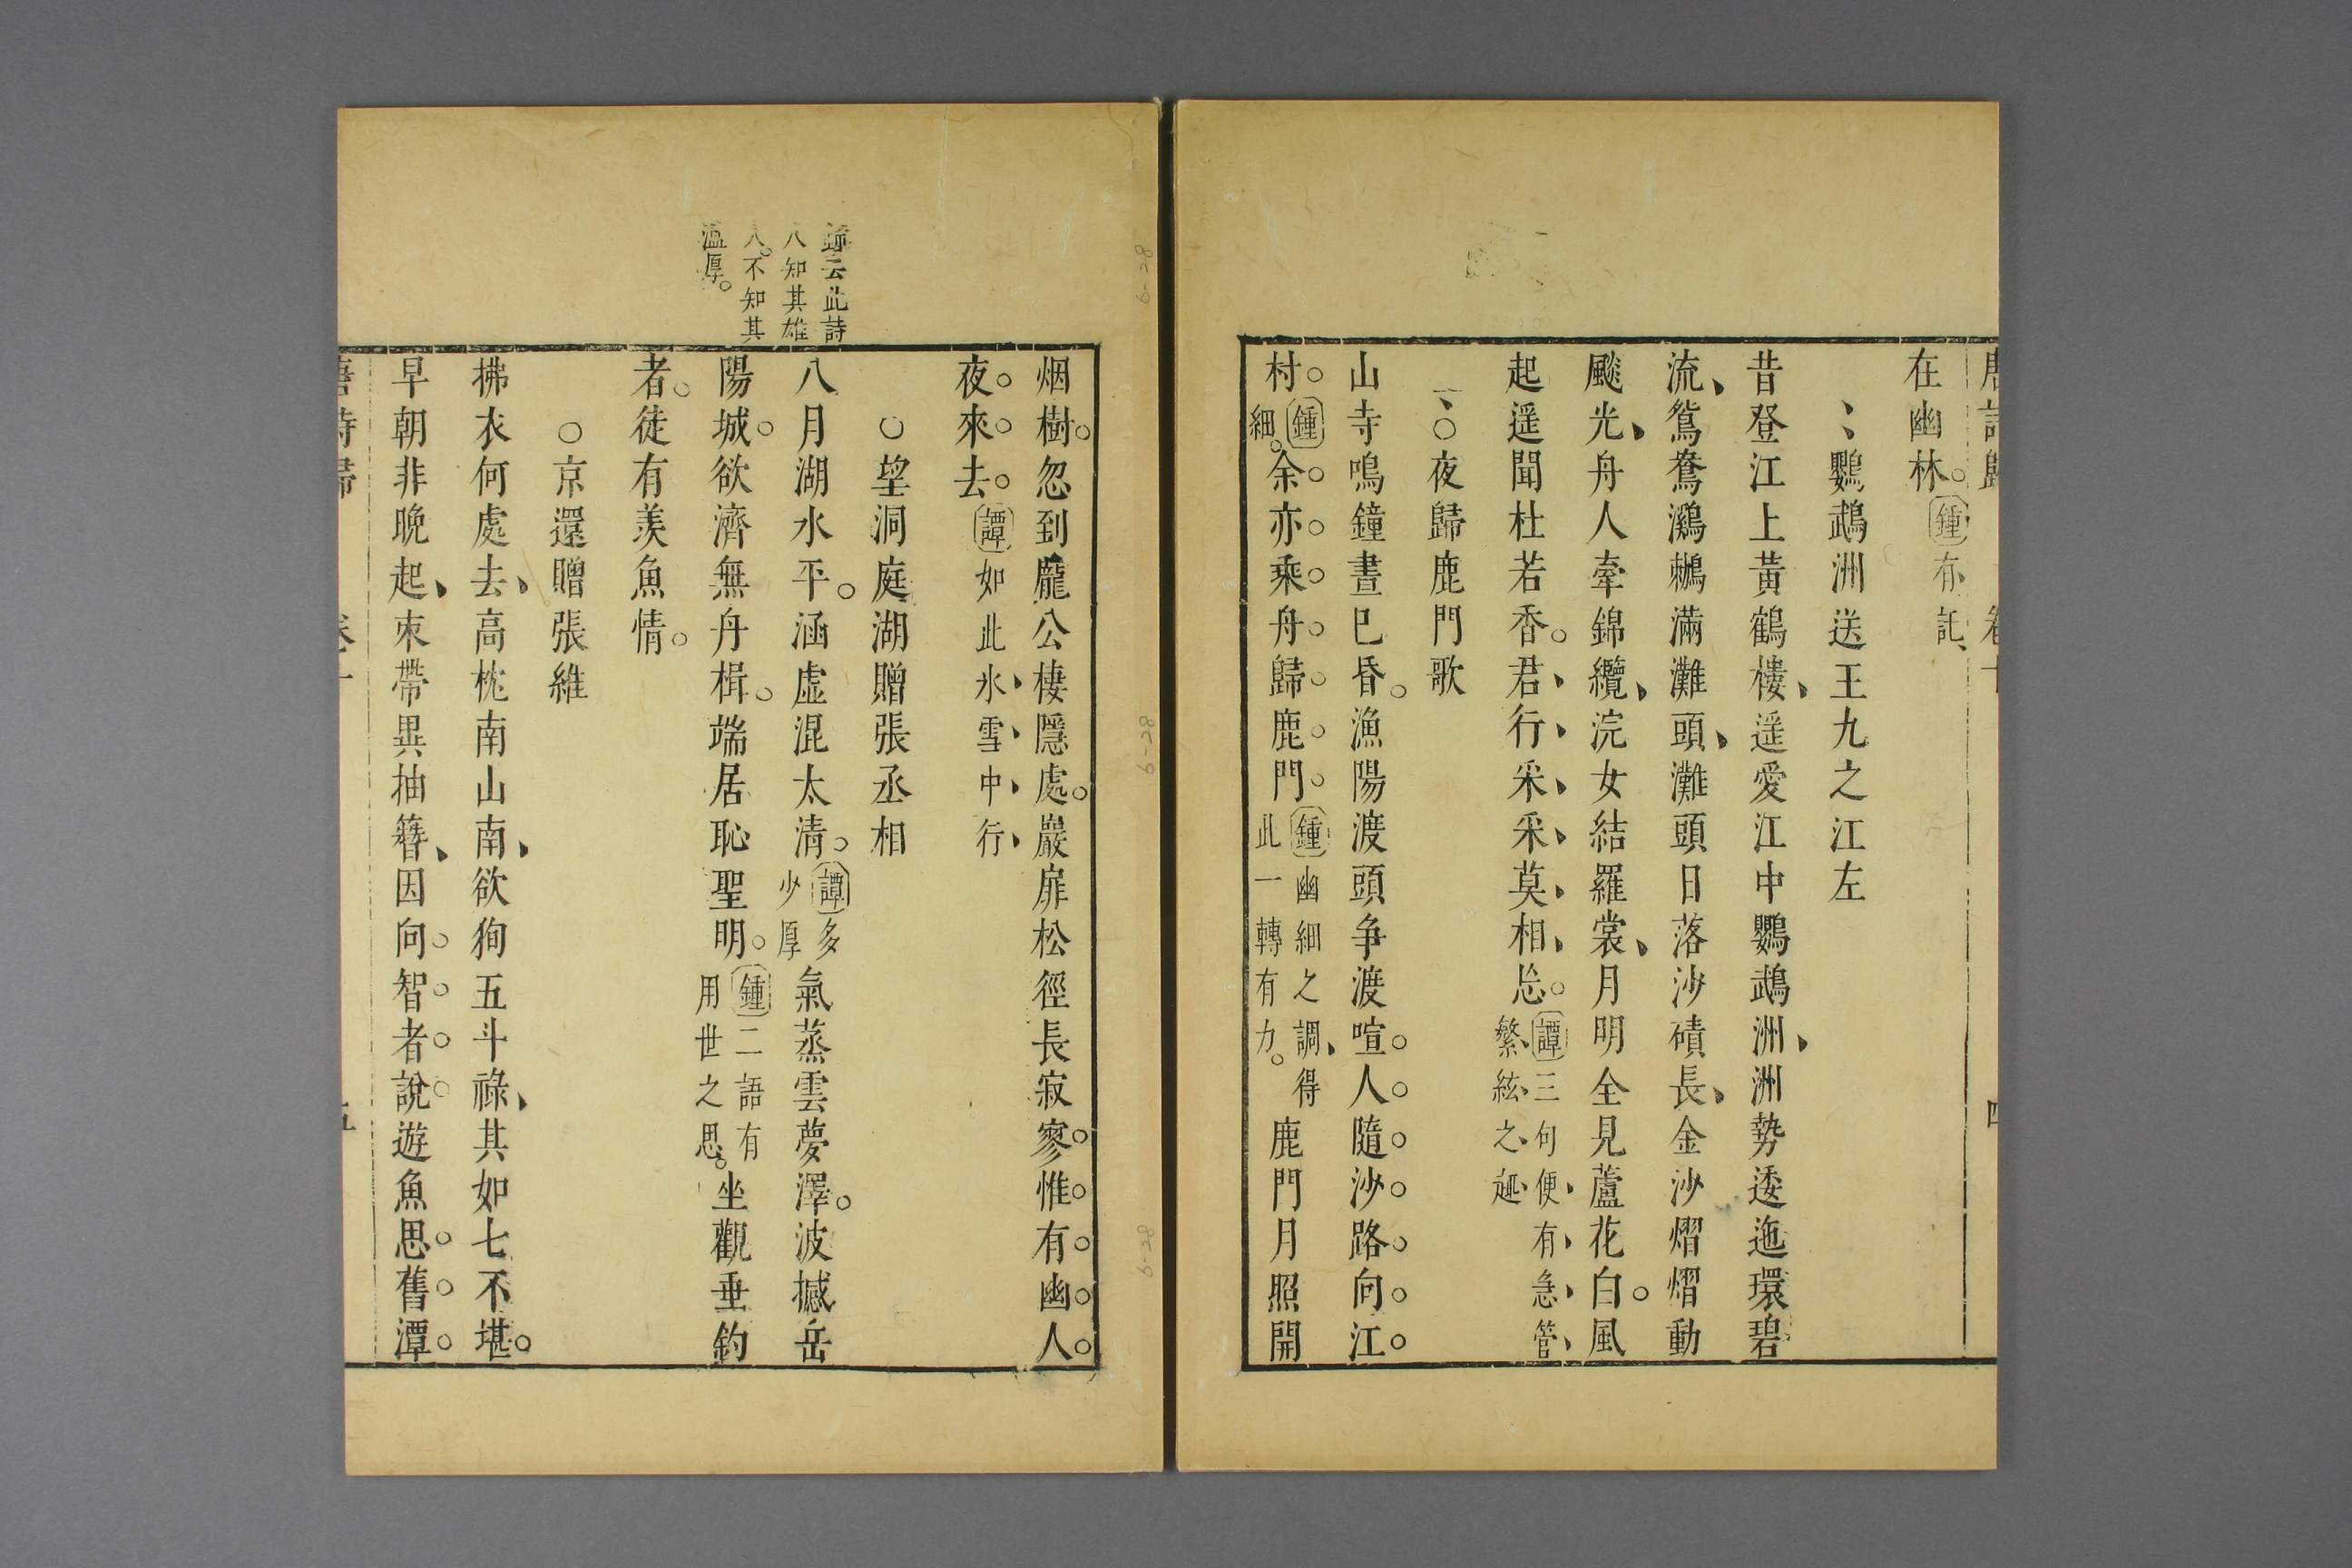 唐詩歸　卷十　四
在幽林。鍾有託、
鸚鵡洲送王九之江左
昔登江上黃鶴樓、遥愛江中鸚鵡洲、洲勢逶迤環碧
流、鴛鴦鸂鶒滿灘頭、灘頭日落沙磧長、金沙熠熠動
飈光、舟人牽錦纜、浣女結羅裳、月明全見蘆花白。風
起遥聞杜若香。君、行、采、采、莫、相、忘。譚三句便、有、急、管、
繁、絃、之、趣
○夜歸鹿門歌
山寺鳴鐘晝巳昏。漁陽渡頭争渡喧。人。隨。沙。路。向。江。
村。鍾
細。余。亦。乘。舟。歸。鹿。門。鍾幽細之調、得
此一轉有力。鹿門月照開
烟樹。忽到龐公棲隱處。巖扉松徑長寂寥。惟。有。幽。人。
夜。來。去。譚如此氷、雪、中、行、
○望洞庭湖贈張丞相
八月湖水平。涵虛混太清。譚多
少厚氣蒸雲夢澤。波撼岳
陽城。欲濟無舟楫。端居恥聖明。鍾二語有
用世之思。坐觀垂釣
者。徒有羨魚情。
○京還贈張維
拂衣何處去、高枕南山南、欲狥五斗祿、其如七不堪。
早朝非晚起、束帶異抽簪、因向。智。者。說。遊魚思。舊。潭。
唐詩歸　卷十　五
鍾云此詩
人知其雄
大。不知其
溫厚。